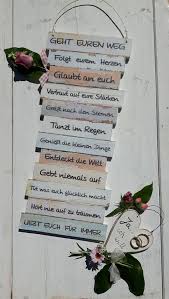 GEHT EUREN WEG
Folgt eurem Herzen
Glaubt an euch
Vertraut auf eure Stärken
Greift nach den Sternen
Tanzt im Regen
Genießt die kleinen Dinge
Entdeckt die Welt
Gebt niemals auf
Tut was euch glücklich macht
Hört nie auf zu träumen
LIEBT EUCH FÜR IMMER